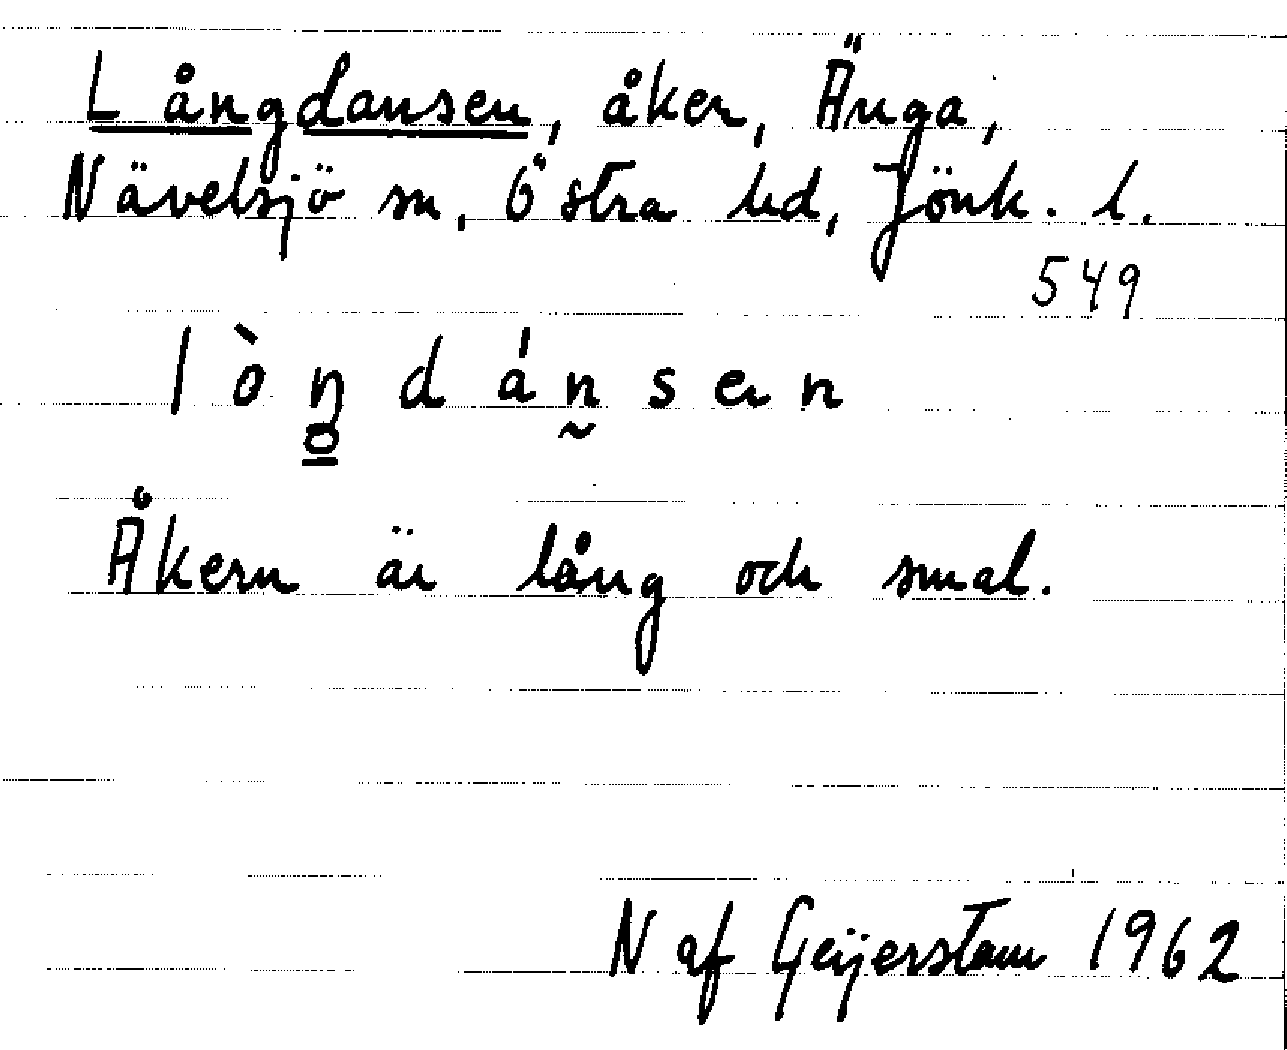 Långdansen, åker, Änga,
Nävelsjö sn, Östra hd, Jönk. l.
549
lòŋdánsen
Åkern är lång och smal.
N af Geijerstam 1962